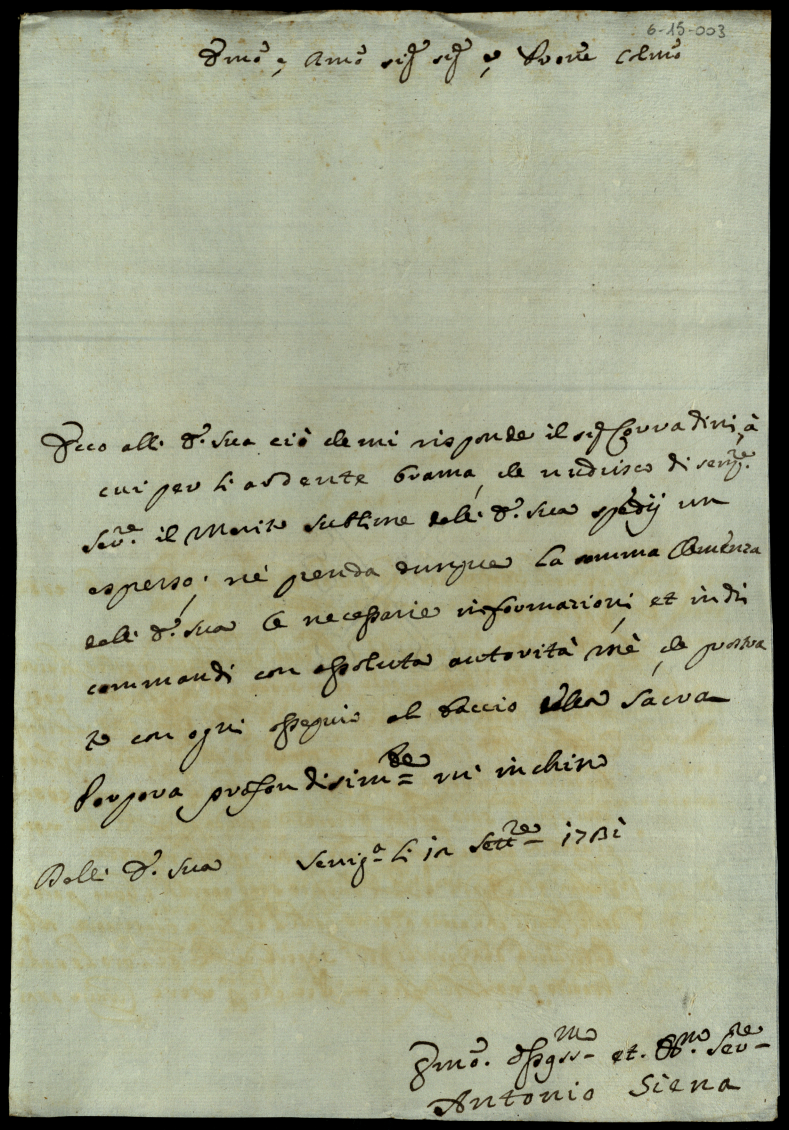 6-15-003
Emo, e, Amo sig sig e, Prone Colmo
Ecco all: E. sua ciò che mi risponde il sig Corradini, à
cui per li ardente brama, che nudrisco di semp.re
ser.re il Merito sublime dell: E. sua spedij un
espresso; nè prenda dunque la somma Clemenza
dell: E. sua le necessarie informazioni, et indi
commandi con assoluta autorità mè, che prostra
to con ogni ossequio al baccio della sacra
Porpora profondisim.te mi inchino
Dell: E. sua Senig.a li 12 Sett.re
Umo. et. Ser.re
Antonio Siena